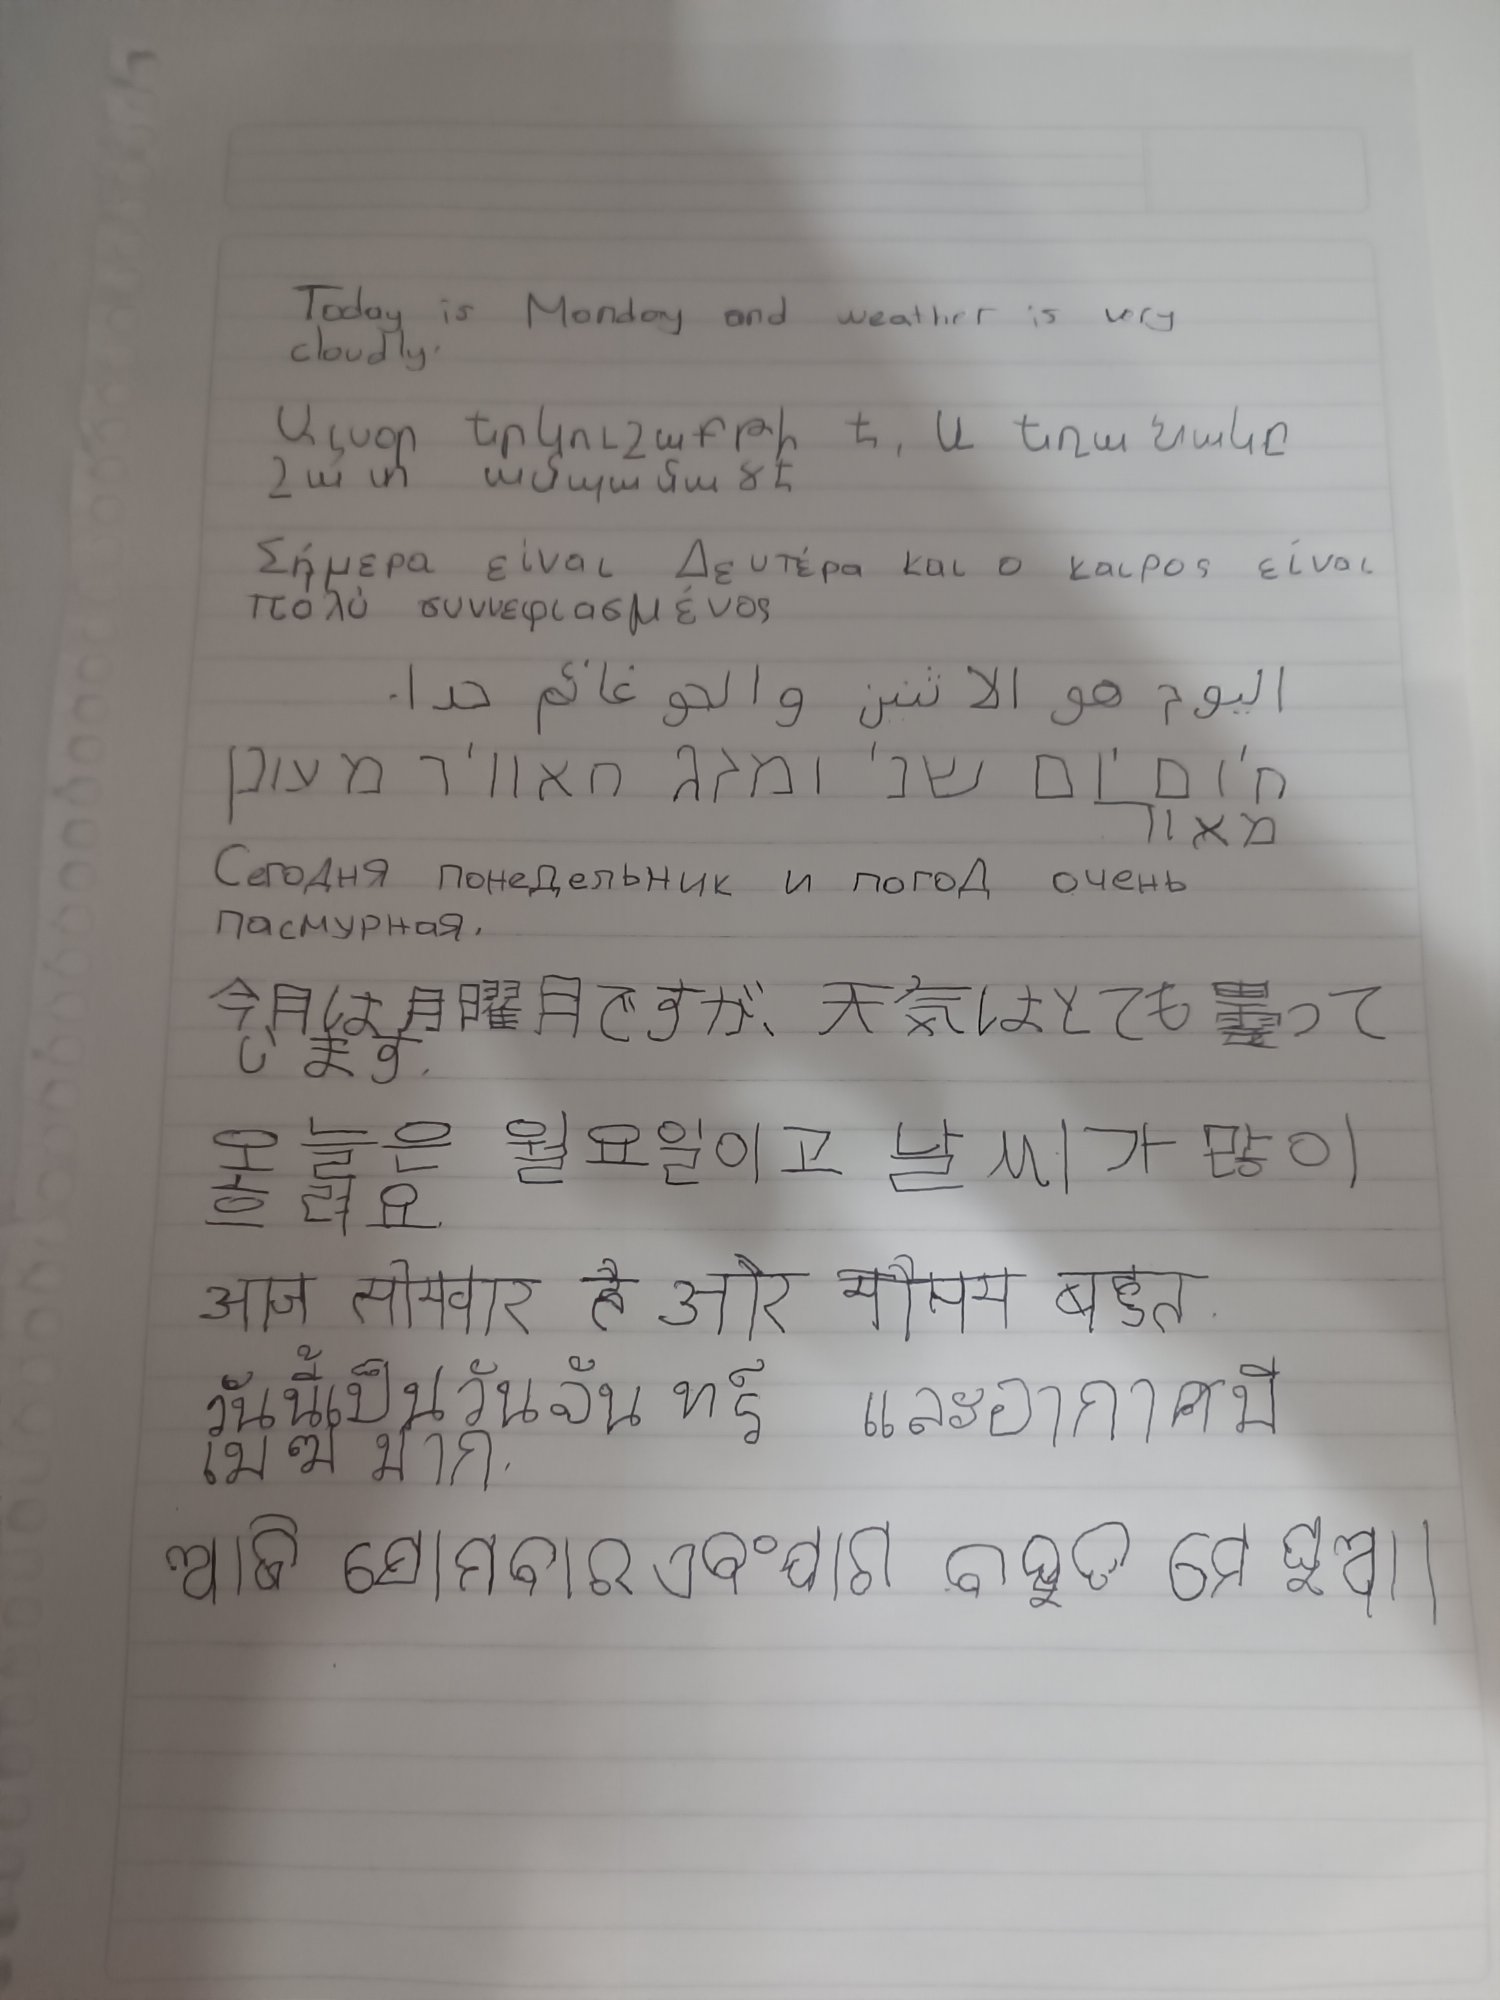 Today is Monday and weather is very
cloudly.
Այսօր երկուշաբթի է, և եղանակը
շատ ամպամած է
Σήμερα είναι Δευτέρα και ο καιρος είναι
πολύ συννεφιασμένος
اليوم هو الاثنين والجو غائم جدا.
היום יום שני ומזג האוויר מעונן
מאוד
Сегодня понедельник и погод очень
пасмурная.
今日は月曜日ですが、天気はとても曇って
います.
오늘은 월요일이고 날씨가 많이
흐려요
आज सोमवार है और मौसम बहुत.
วันนี้เป็นวันจันทร์ และอากาศมี
เมฆมาก.
ଆଜି ସୋମବାର ଏବଂ ପାଗ ବହୁତ ମେଘୁଆ।